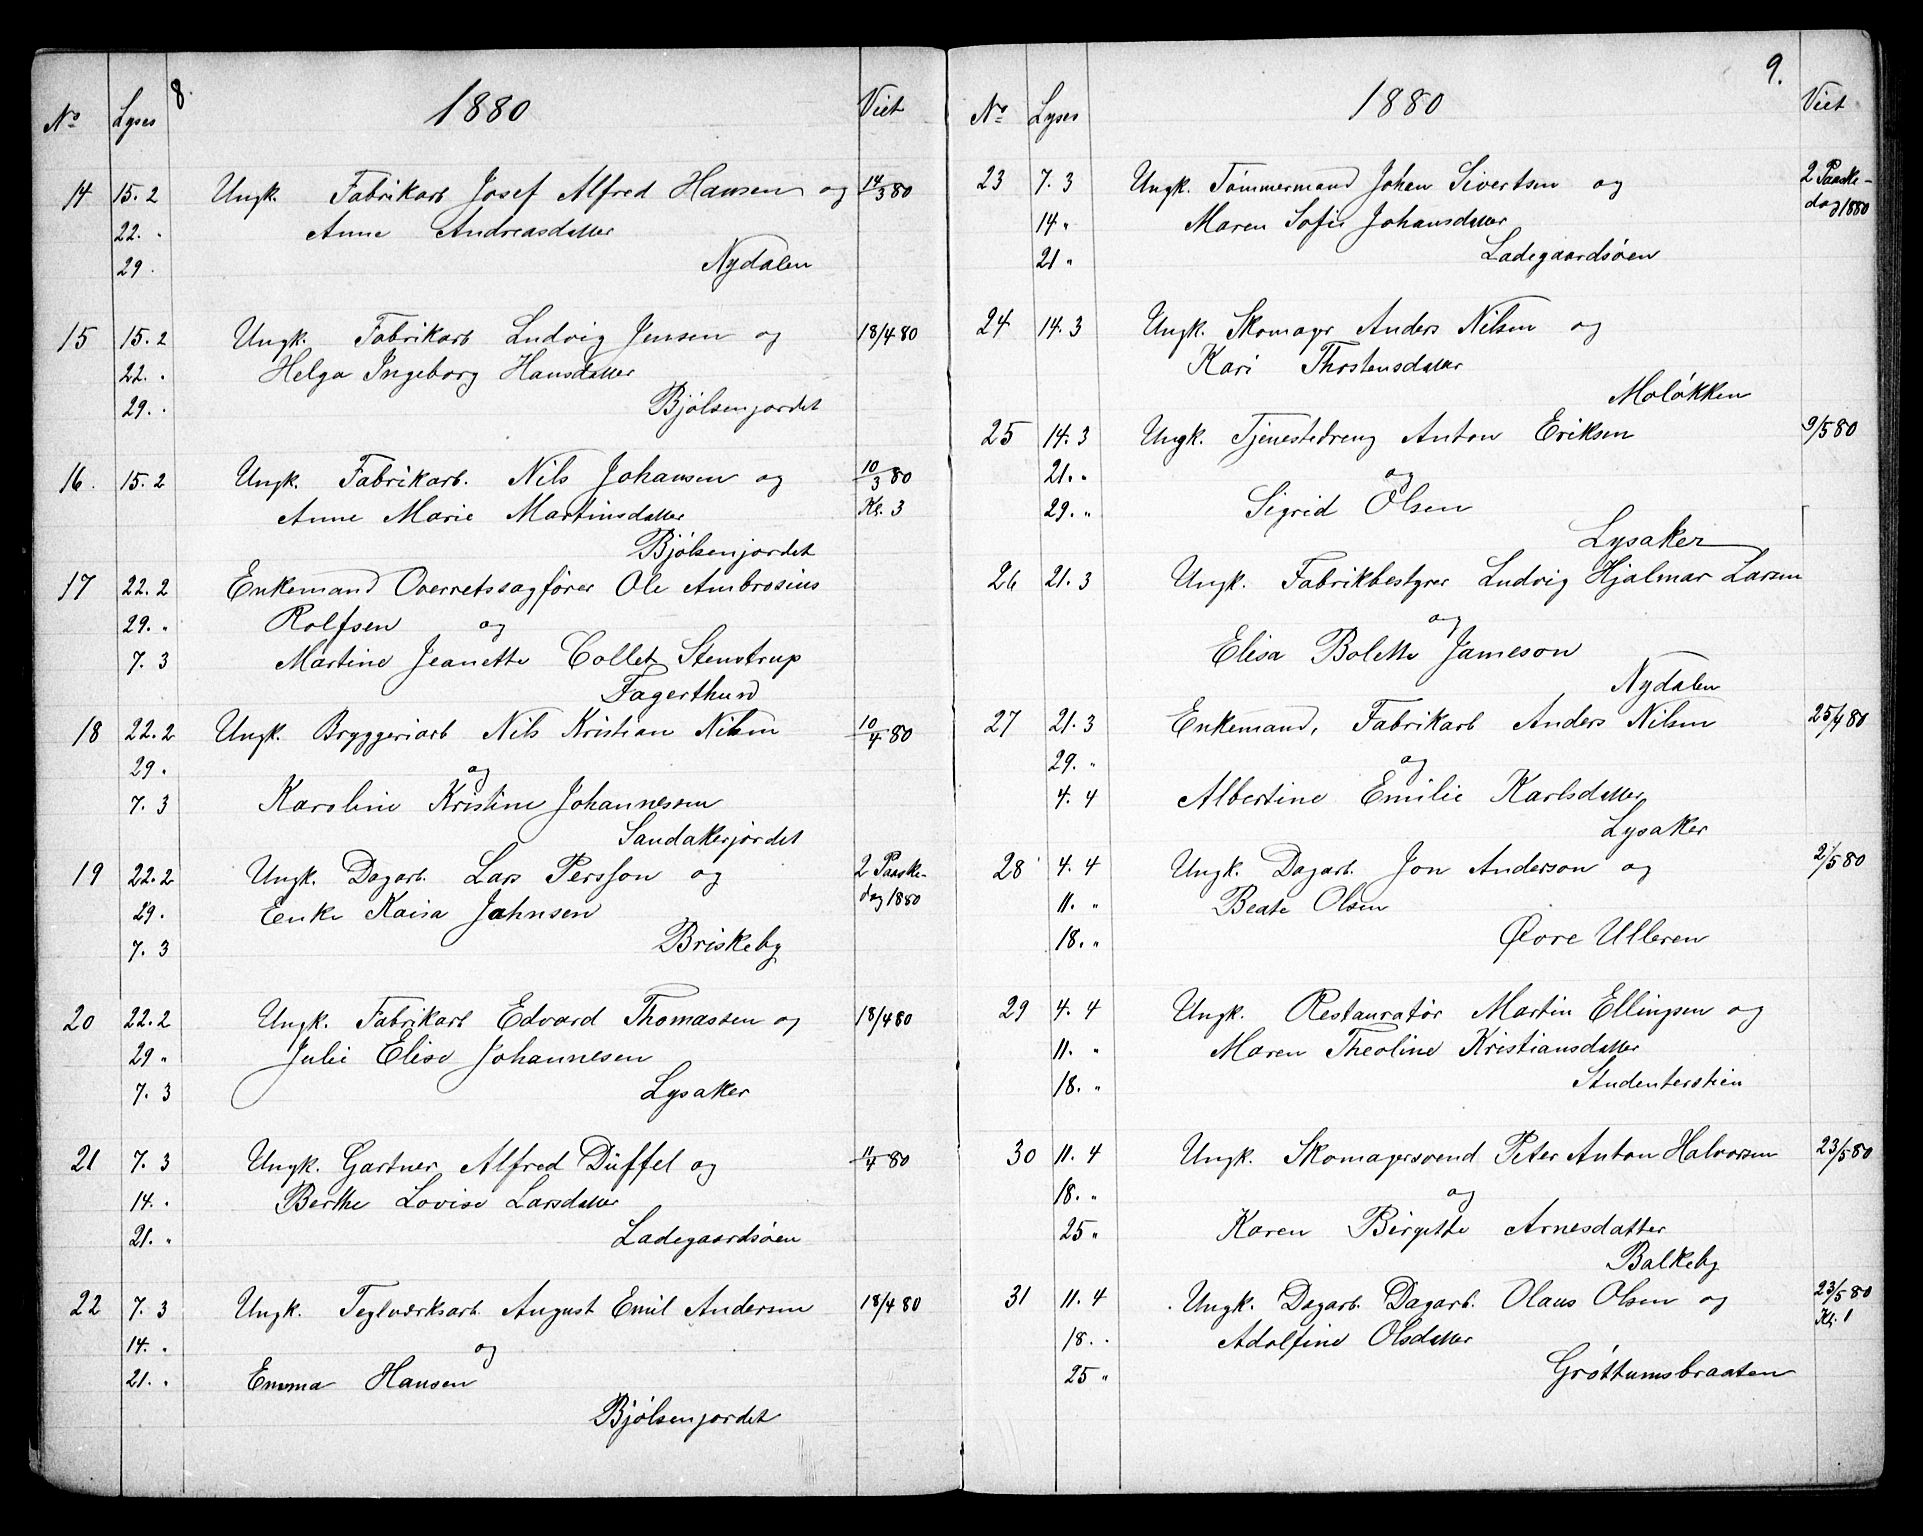 8.
1880
No Lyses Viet
14 15.2 Ungk. Fabrikarb Josef Alfred Hansen og 14/3 80
22. " Anne Andreasdatter
29. Nydalen
15 15.2 Ungk. Fabrikarb Ludvig Jensen og 18/4 80
22. " Helga Ingeborg Hansdatter
29. " Bjølsenjordet
16. 15.2 Ungk. Fabrikarb. Nils Johansen og 10/3 80
Anne Marie Martinsdatter Kl. 3
Bjølsenjordet
17 22.2 Enkemand Overretssagfører Ole Ambrosius
29. " Rolfsen og
7. 3 Martine Jeanette Collet Stenstrup
Fagerthun
18 22.2 Ungk. Bryggeriarb Nils Kristian Nilsen 10/4 80
29. og
7. 3 Karoline Kristine Johannessen
Sandakerjordet
19 22.2 Ungk. Dagarb. Lars Persson og 2 Paaske-
29. Enke Kaisa Johnsen dag 1880
7. 3 Briskeby
20 22.2 Ungk. Fabrikarb Edvard Thomassen og 18/4 80
29 " Julie Elise Johannesen
7. 3 Lysaker
21 7. 3 Ungk. Gartner Alfred Düffel og 11/4 80
14. " Berthe Lovise Larsdatter
21. " Ladegaardsøen
22 7. 3 Ungk. Teglværksarb. August Emil Andersen 18/4 80
14. " og
21. " Emma Hansen
Bjølsenjordet
9.
1880
No Lyses Viet
23 7. 3 Ungk. Tømmermand Johan Sivertsen og 2 Paaske-
14 " Maren Sofie Johansdatter dag 1880
21 " Ladegaardsøen
24 14. 3 Ungk. Skomager Anders Nilsen og
Kari Thostensdatter
Moløkken
25 14. 3 Ungk. Tjenestedreng Anton Eriksen 9/5 80
21. " og
29. " Sigrid Olsen
Lysaker
26 21. 3 Ungk. Fabrikbestyrer Ludvig Hjalmar Larsen
og
Elisa Bolette Jameson
Nydalen
27 21. 3 Enkemand, Fabrikarb Anders Nilsen 25/4 80
29. " og
4. 4 Albertine Emilie Karlsdatter
Lysaker
28 4. 4 Ungk. Dagarb. Jon Anderson og 2/5 80
11. " Beate Olsen
18. " Øvre Ulleren
29 4. 4 Ungk. Restauratør Martin Ellingsen og
11. " Maren Theoline Kristiansdatter
18. " Studenterstien
30 11. 4 Ungk. Skomagersvend Peter Anton Halvorsen 23/5 80
18. " og
25 " Karen Birgitte Arnesdatter
Balkeby
31 11. 4 Ungk. Dagarb. Dagarb. Olaus Olsen og 23/5 80
18. " Adolfine Olsdatter Kl. 1
25 " Grøttumsbraaten